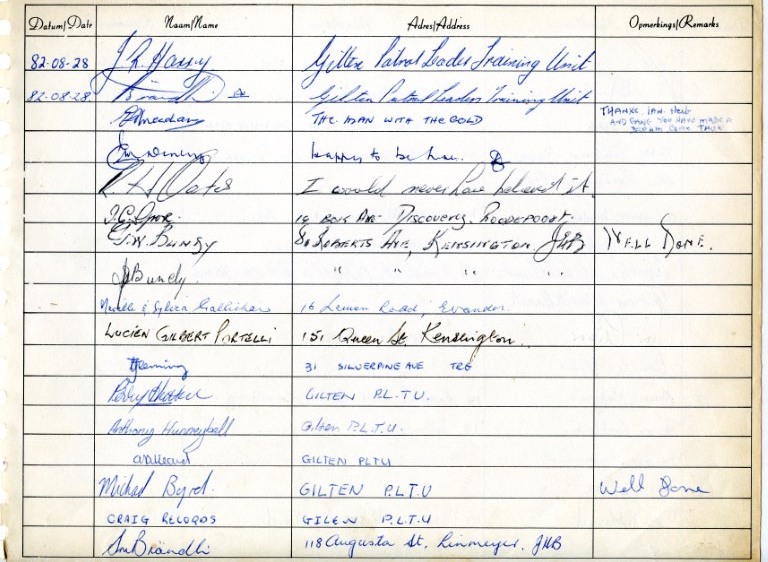 Datum/Date Naam/Name Adres/Address Opmerkings/Remarks
82-08-28 J.R. Gilten Patrol Leader Training Unit
82-08-28 Brändli Gilten Patrol Leaders Training Unit
THE MAN WITH THE GOLD THANKS IAN
AND GANG YOU HAVE MADE A
DREAM COME TRUE
happy to be here.
R H Oates I would never have believed it.
AVE DISCOVERY, ROODEPOORT.
G.W. BUNDY 80 ROBERTS AVE, KENSINGTON. JHB WELL DONE.
Bundy " " " "
& Sylvia 16 Lemon Road, Evander
LUCIEN GILBERT PORTELLI 151 Queen St Kensington.
Fleming 31 SILVERPINE AVE
GILTEN P.L.T.U.
Anthony Hunneyball Gilten P.L.T.U.
GILTEN PLTU
Michael Boyd. GILTEN P.L.T.U Well Done
CRAIG RECORDS GILEN P.L.T.U
Brändli 118 Augusta St. Linmeyer. JHB